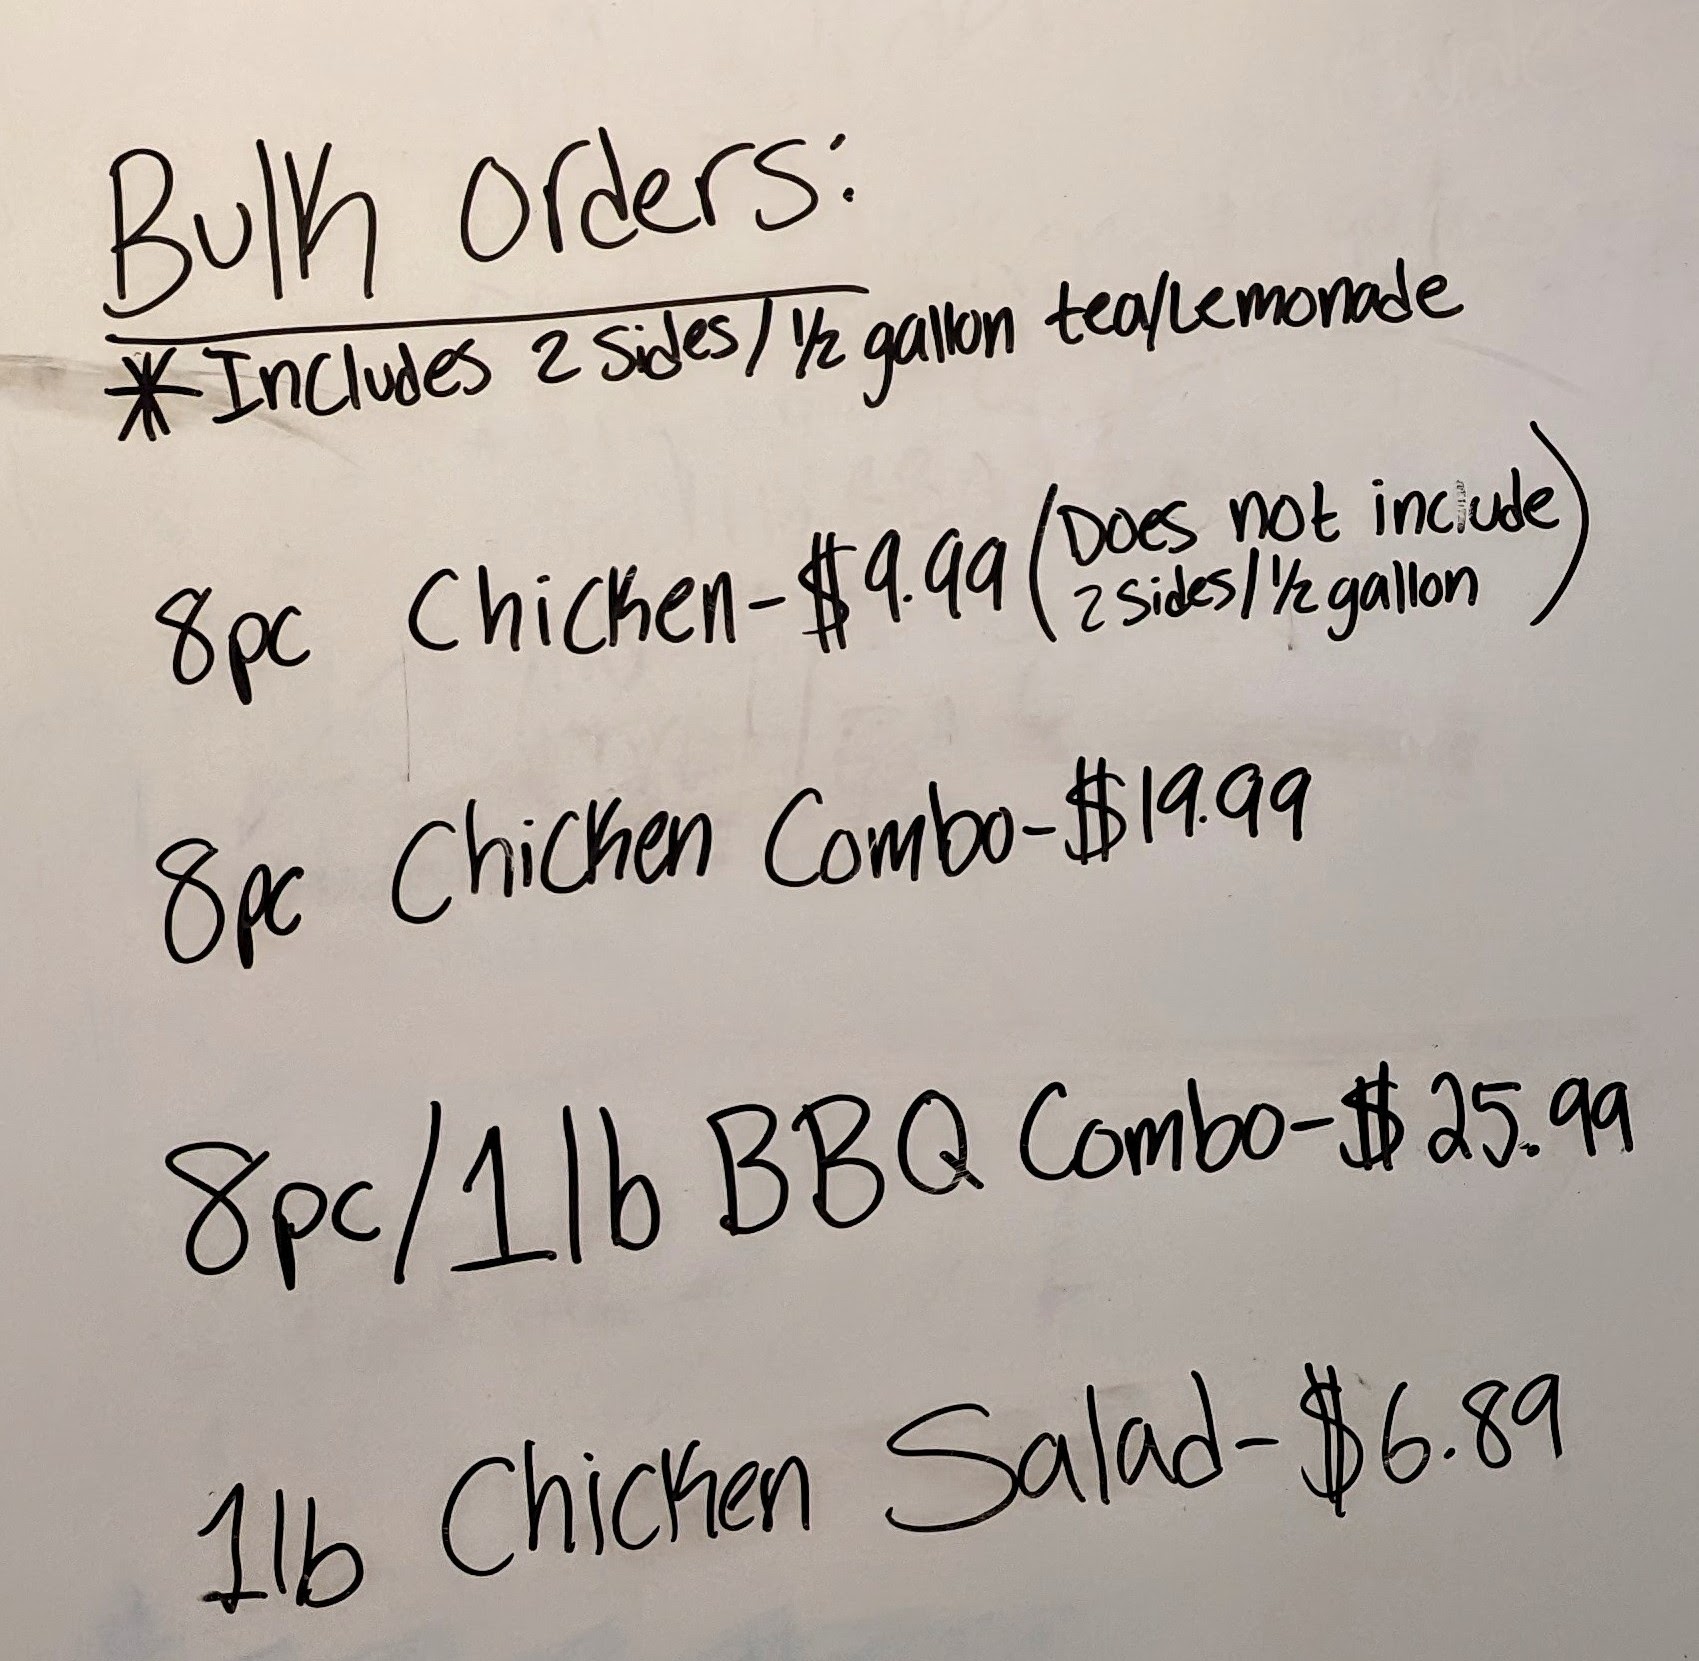 Bulk Orders:
* Includes 2 Sides/ 1/2 gallon tea/Lemonade
8pc Chicken-$9.99 (Does not include
2 sides/ 1/2 gallon)
8pc Chicken Combo-$19.99
8pc/1lb BBQ Combo-$25.99
1lb Chicken Salad-$6.89